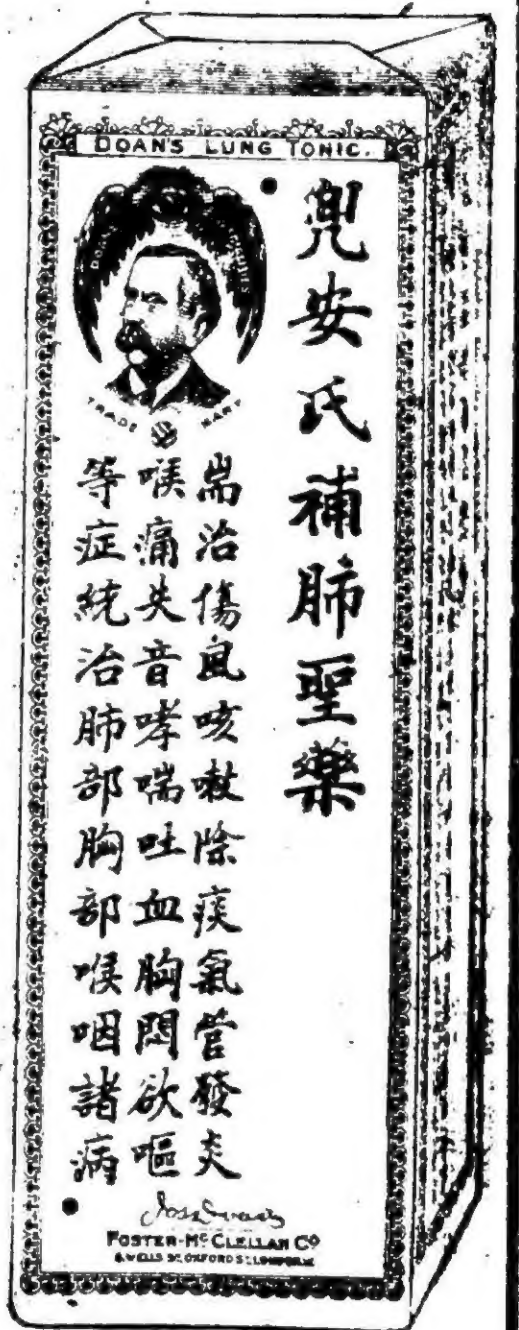 DOAN'S LUNG TONIC.
兜安氏補肺聖藥
TRADE MARK
耑治傷風咳嗽除痰氣管發炎
喉痛失音哮喘吐血胸悶欲嘔
等症統治肺部胸部喉咽諸病
FOSTER-McCLELLAN CO
8 WELLS ST. OXFORD ST. LONDON.W.